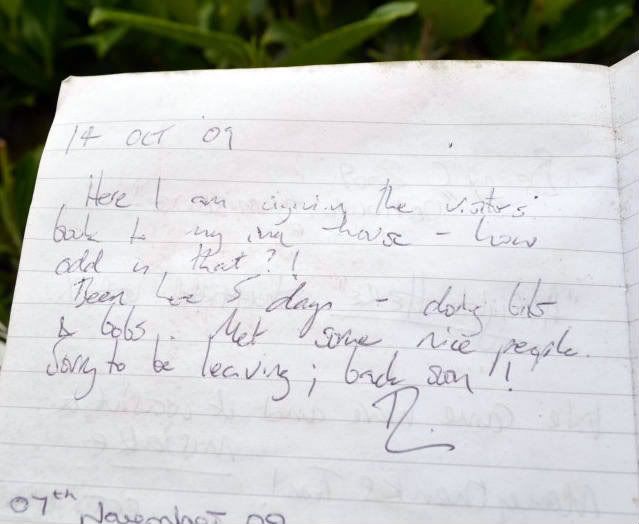 14 OCT 09
Here I am signing the visitors'
book to my own house - how
odd is that?!
Been here 5 days - doing bits
& bobs. Met some nice people.
Sorry to be leaving; back soon!
07th November 09